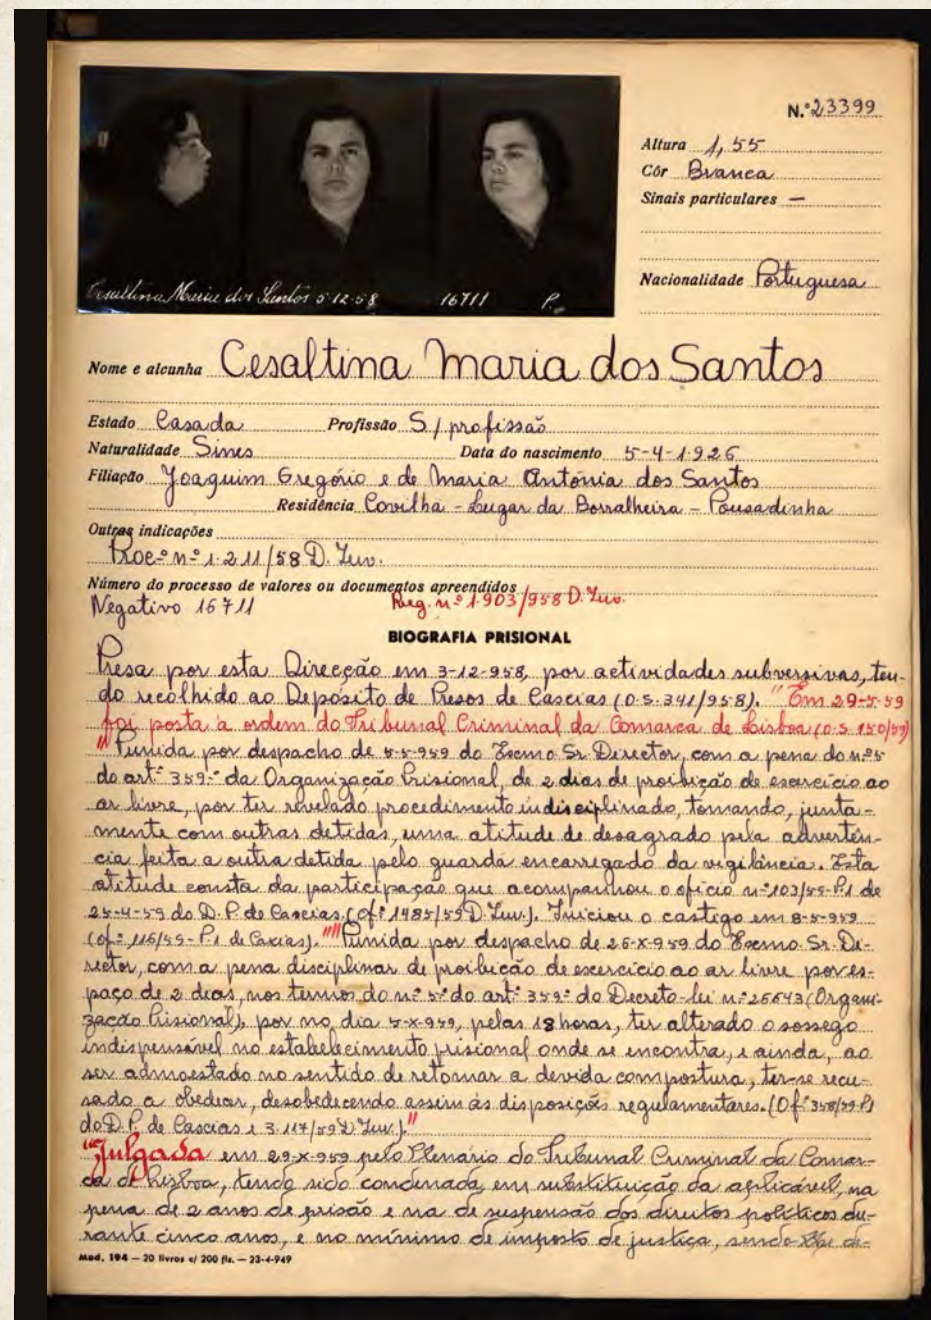 N.º 23399
Altura 1,55
Côr Branca
Sinais particulares —
Nacionalidade Portuguesa
Cesaltina Maria dos Santos 5-12-58 16711 P.
Nome e alcunha Cesaltina Maria dos Santos
Estado Casada Profissão S/ profissão
Naturalidade Sines Data do nascimento 5-4-1926
Filiação Joaquim Gregório e de Maria Antónia dos Santos
Residência Covilhã - Lugar da Borralheira - Pousadinha
Outras indicações
Proc.º nº 1.211/58 D. Inv.
Número do processo de valores ou documentos apreendidos
Negativo 16711 Reg. nº 1.903/958 D. Inv.
BIOGRAFIA PRISIONAL
Presa por esta Direcção em 3-12-958, por actividades subversivas, ten-
do recolhido ao Depósito de Presos de Caxias (O.S. 341/958). "Em 29-5-59
foi posta à ordem do Tribunal Criminal da Comarca de Lisboa (O.S. 150/59)
"Punida por despacho de 5-5-959 do Exmo Sr. Director, com a pena do nº 5
do artº 359º da Organização Prisional, de 2 dias de proibição de exercício ao
ar livre, por ter revelado procedimento indisciplinado, tomando, junta-
mente com outras detidas, uma atitude de desagrado pela advertên-
cia feita a outra detida pelo guarda encarregado da vigilância. Esta
atitude consta da participação que acompanhou o ofício nº 103/59-P.1 de
25-4-59 do D. P. de Caxias. (Ofº 1485/59 D. Inv.). Iniciou o castigo em 8-5-959
(ofº 116/59-P.1 de Caxias)." "Punida por despacho de 26-X-959 do Exmo. Sr. Di-
rector, com a pena disciplinar de proibição de exercício ao ar livre por es-
paço de 2 dias, nos termos do nº 5º do artº 359º do Decreto-lei nº 26643 (Organi-
zação Prisional), por no dia 5-X-959, pelas 18 horas, ter alterado o sossego
indispensável no estabelecimento prisional onde se encontra, e ainda, ao
ser admoestado no sentido de retomar a devida compostura, ter-se recu-
sado a obedecer, desobedecendo assim às disposições regulamentares. (Ofº 358/59 P.1
do D. P. de Caxias e 3.117/59 D. Inv.)."
"Julgada em 29-X-959 pelo Plenário do Tribunal Criminal da Comar-
ca de Lisboa, tendo sido condenada, em substituição da aplicável, na
pena de 2 anos de prisão e na de suspensão dos direitos políticos du-
rante cinco anos, e no mínimo de imposto de justiça, sendo-lhe de-
Mod. 194 — 20 livros c/ 200 fls. — 23-4-949